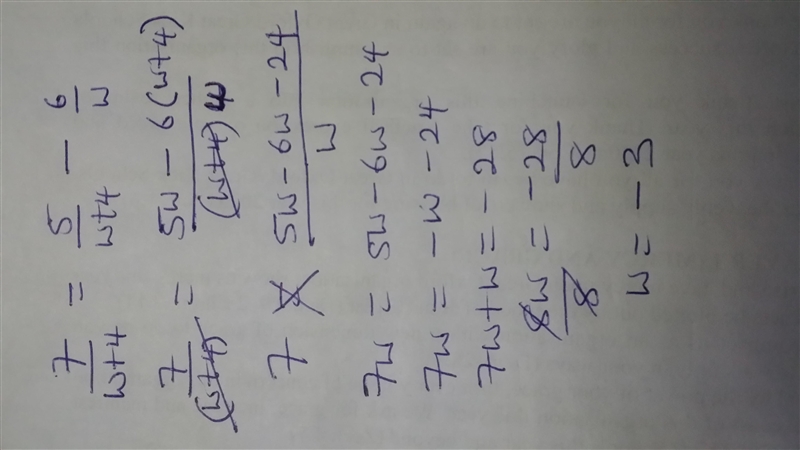 7/(w+4) = 5/(w+4) - 6/w
7/(w+4) = (5w - 6(w+4))/((w+4)w)
7 = (5w - 6w - 24)/w
7w = 5w - 6w - 24
7w = -w - 24
7w + w = -28
8w/8 = -28/8
w = -3